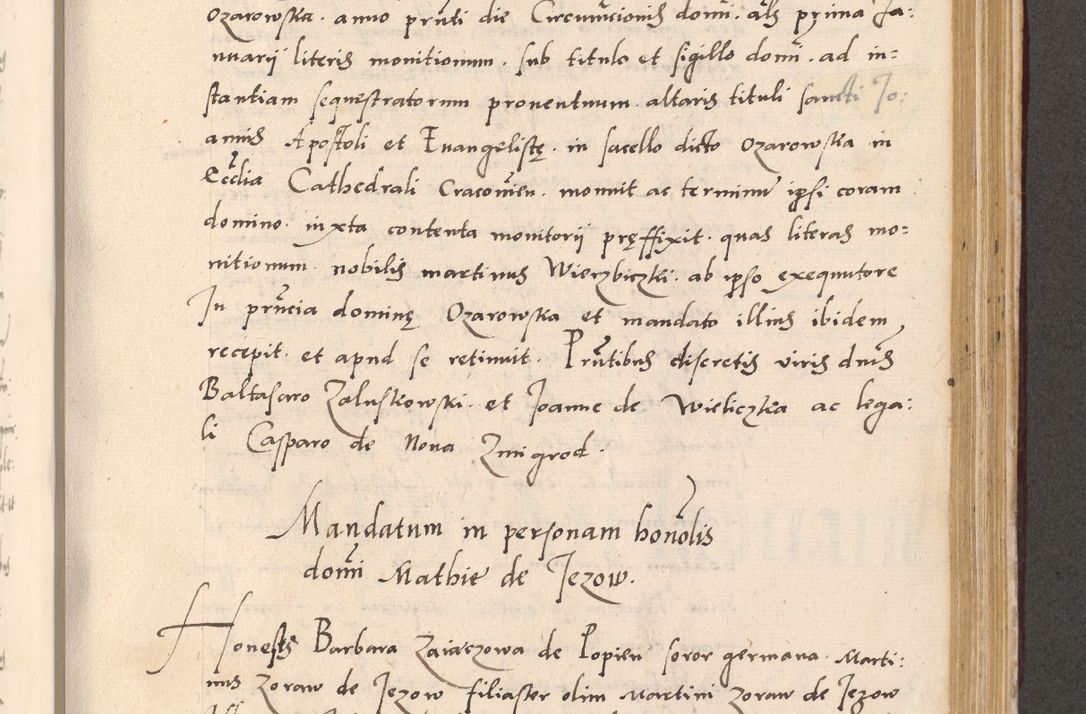 Ozarowska. anno prñti die Circumcionis domi. als prima Ja:
nuarii literis monitionum. sub titulo et sigillo domi. ad in=
stantiam sequestratorum proventuum. altaris tituli sancti Jo:
annis Apostoli et Evangelistę. in sacello dicto Ozarowska in
Ecclia Cathedrali Cracovien. monuit ac terminu ipsi coram
domino. iuxta contenta monitorii pręffixit. quas literas mo=
nitionum. nobilis martinus Wierzbiczki. ab ipso exequutore
In prñcia dominę Ozarowska et mandato illius ibidem
recepit. et apud se retinuit. Prñtibus discretis viris dnis
Baltasaro Zaluskowski. et Joanne de Wieliczka ac lega:
li Casparo de Nova Zmigrod.
Mandatum in personam honolis
domi Mathie de Jezow.
Honesta Barbara Zaiaczowa de Popien soror germana. Marti:
nus Zoraw de Jezow filiaster olim Martini Zoraw de Jezow